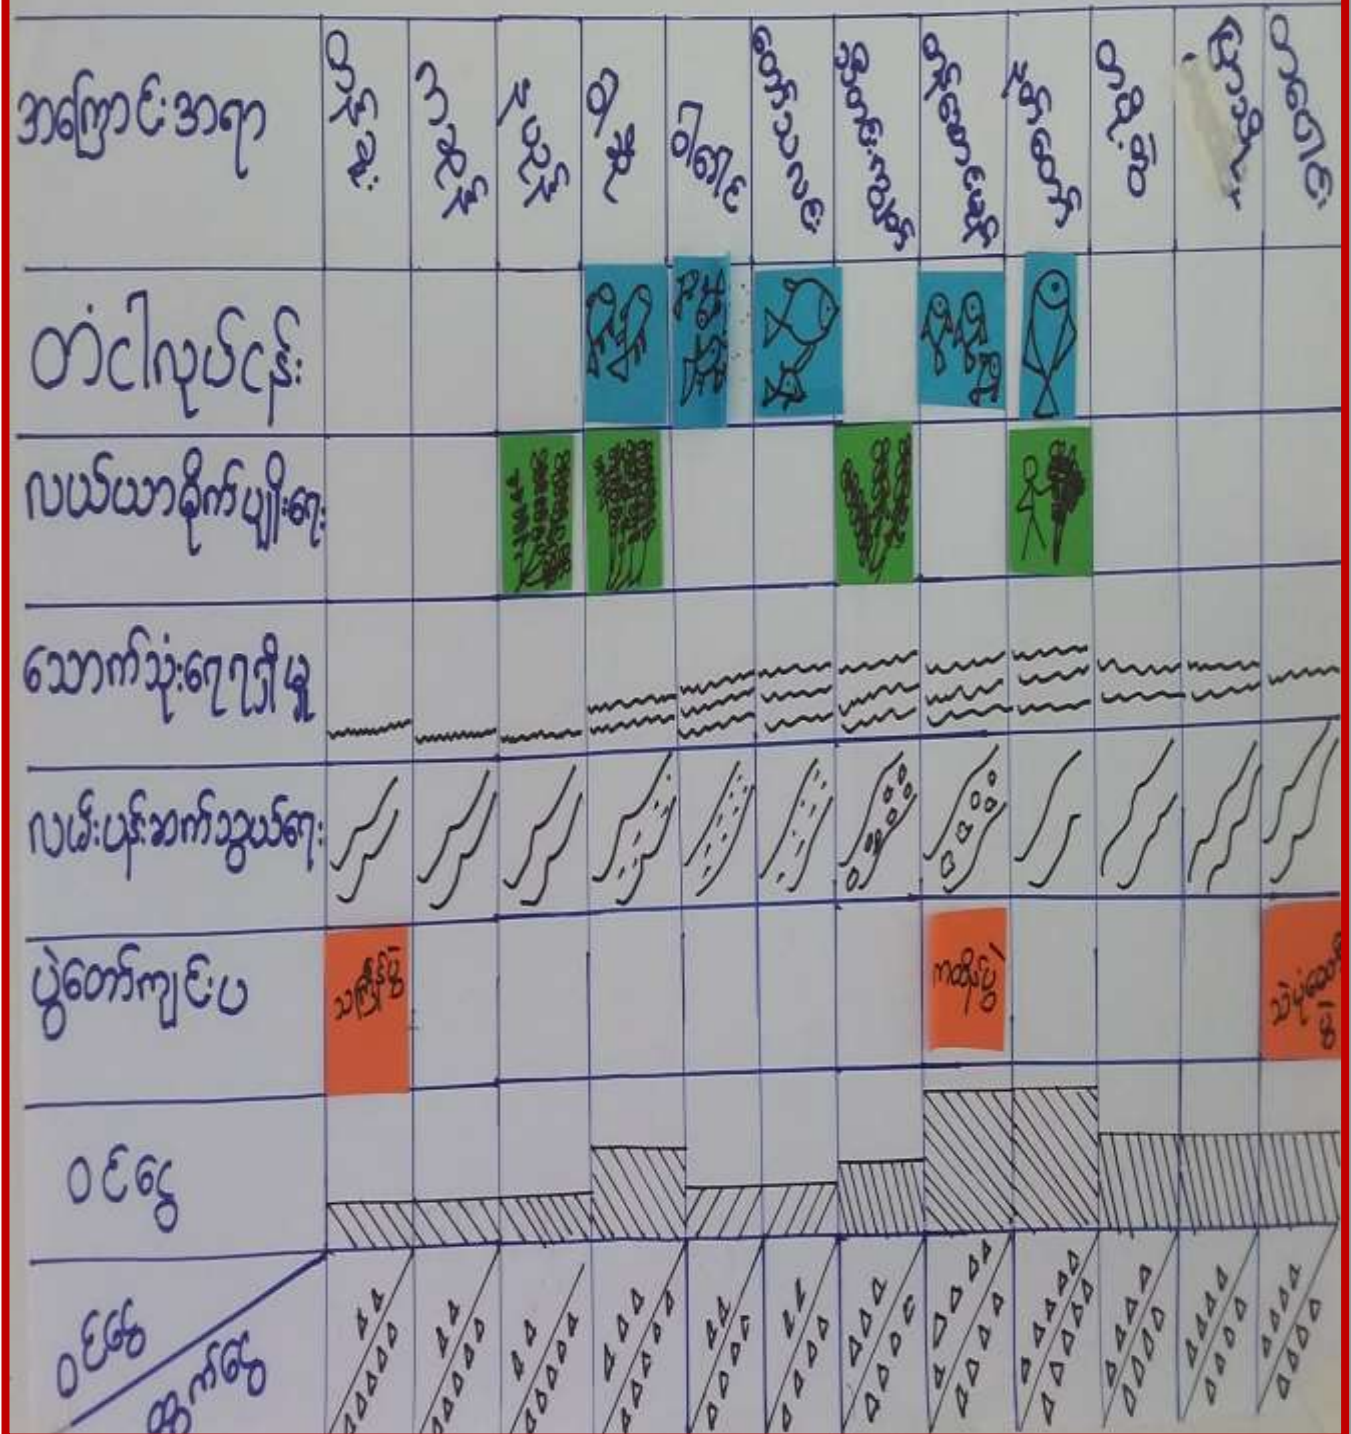 အကြောင်းအရာ
တန်ခူး
ကဆုန်
နယုန်
ဝါဆို
ဝါခေါင်
တော်သလင်း
သီတင်းကျွတ်
တန်ဆောင်မုန်း
နတ်တော်
တပို့တွဲ
တပေါင်း
တံငါလုပ်ငန်း
လယ်ယာစိုက်ပျိုးရေး
သောက်သုံးရေရရှိမှု
လမ်းပန်းဆက်သွယ်ရေး
ပွဲတော်ကျင်းပ
သင်္ကြန်ပွဲ
ကထိန်ပွဲ
ဝင်ငွေ
ဝင်ငွေ
ထွက်ငွေ